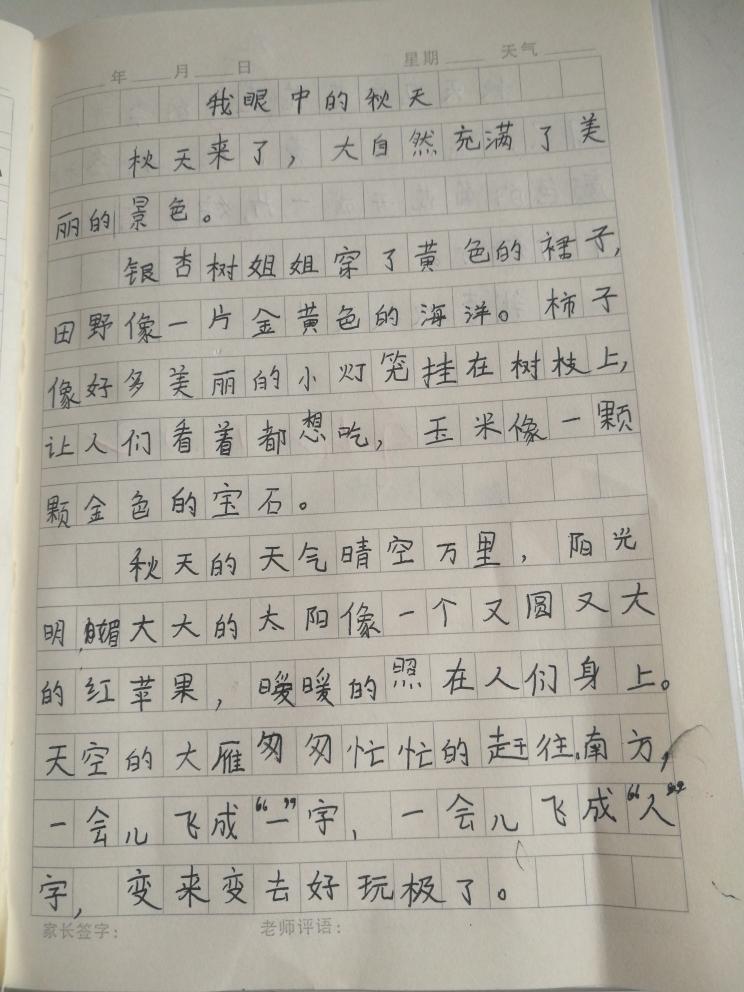 年 月 日 星期 天气
我眼中的秋天
秋天来了，大自然充满了美
丽的景色。
银杏树姐姐穿了黄色的裙子,
田野像一片金黄色的海洋。柿子
像好多美丽的小灯笼挂在树枝上,
让人们看着都想吃，玉米像一颗
颗金色的宝石。
秋天的天气晴空万里，阳光
明媚,大大的太阳像一个又圆又大
的红苹果，暖暖的照在人们身上。
天空的大雁匆匆忙忙的赶往南方,
一会儿飞成“一”字，一会儿飞成“人”
字，变来变去好玩极了。
家长签字： 老师评语：